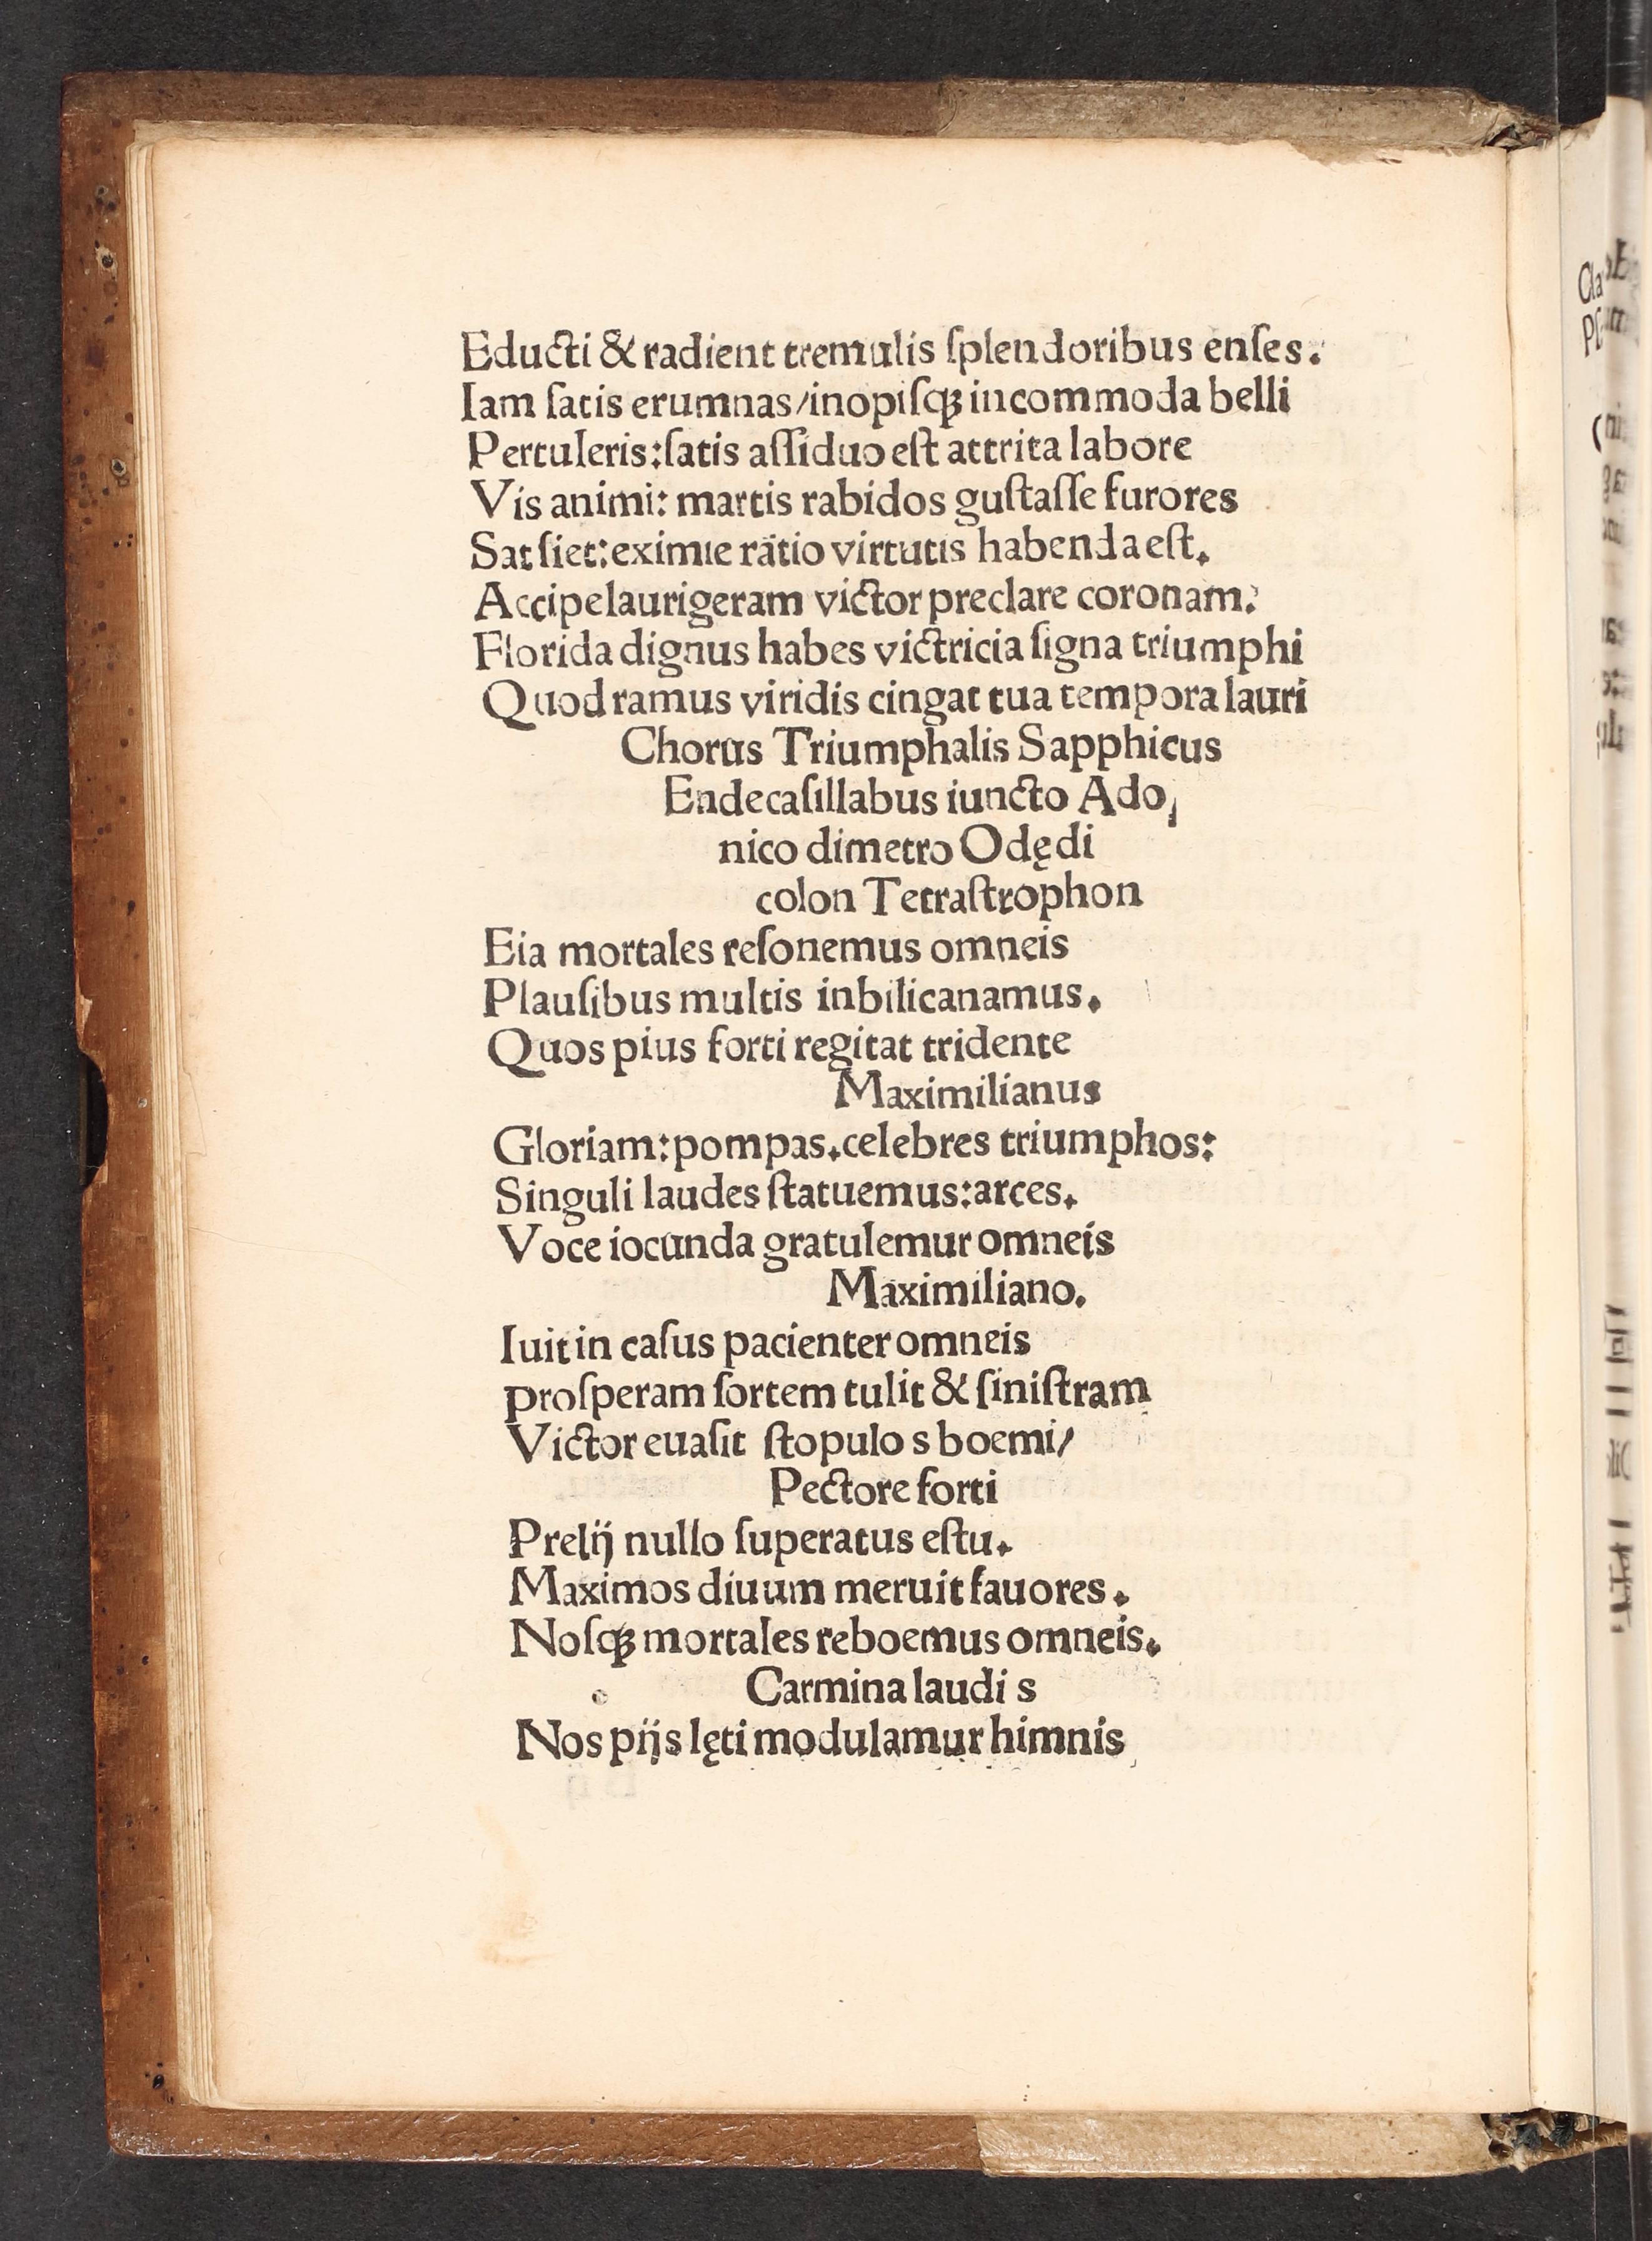 Educti & radient tremulis ſplendoribus enſes.
Iam ſatis erumnas/inopiſqꝫ incommoda belli
Pertuleris:ſatis aſſiduo eſt attrita labore
Vis animi: martis rabidos guſtaſſe furores
Sat ſiet:eximie ratio virtutis habenda eſt.
Accipe laurigeram victor preclare coronam:
Florida dignus habes victricia ſigna triumphi
Quod ramus viridis cingat tua tempora lauri
Chorus Triumphalis Sapphicus
Endecaſillabus iuncto Ado,
nico dimetro Odędi
colon Tetraſtrophon
Eia mortales reſonemus omneis
Plauſibus multis inbilicanamus.
Quos pius forti regitat tridente
Maximilianus
Gloriam:pompas.celebres triumphos:
Singuli laudes ſtatuemus:arces.
Voce iocunda gratulemur omneis
Maximiliano.
Iuit in caſus pacienter omneis
proſperam ſortem tulit & ſiniſtram
Victor euaſit ſtopulo s boemi/
Pectore forti
Prelij nullo ſuperatus eſtu.
Maximos diuum meruit fauores.
Noſqꝫ mortales reboemus omneis.
Carmina laudi s
Nos pijs lęti modulamur himnis